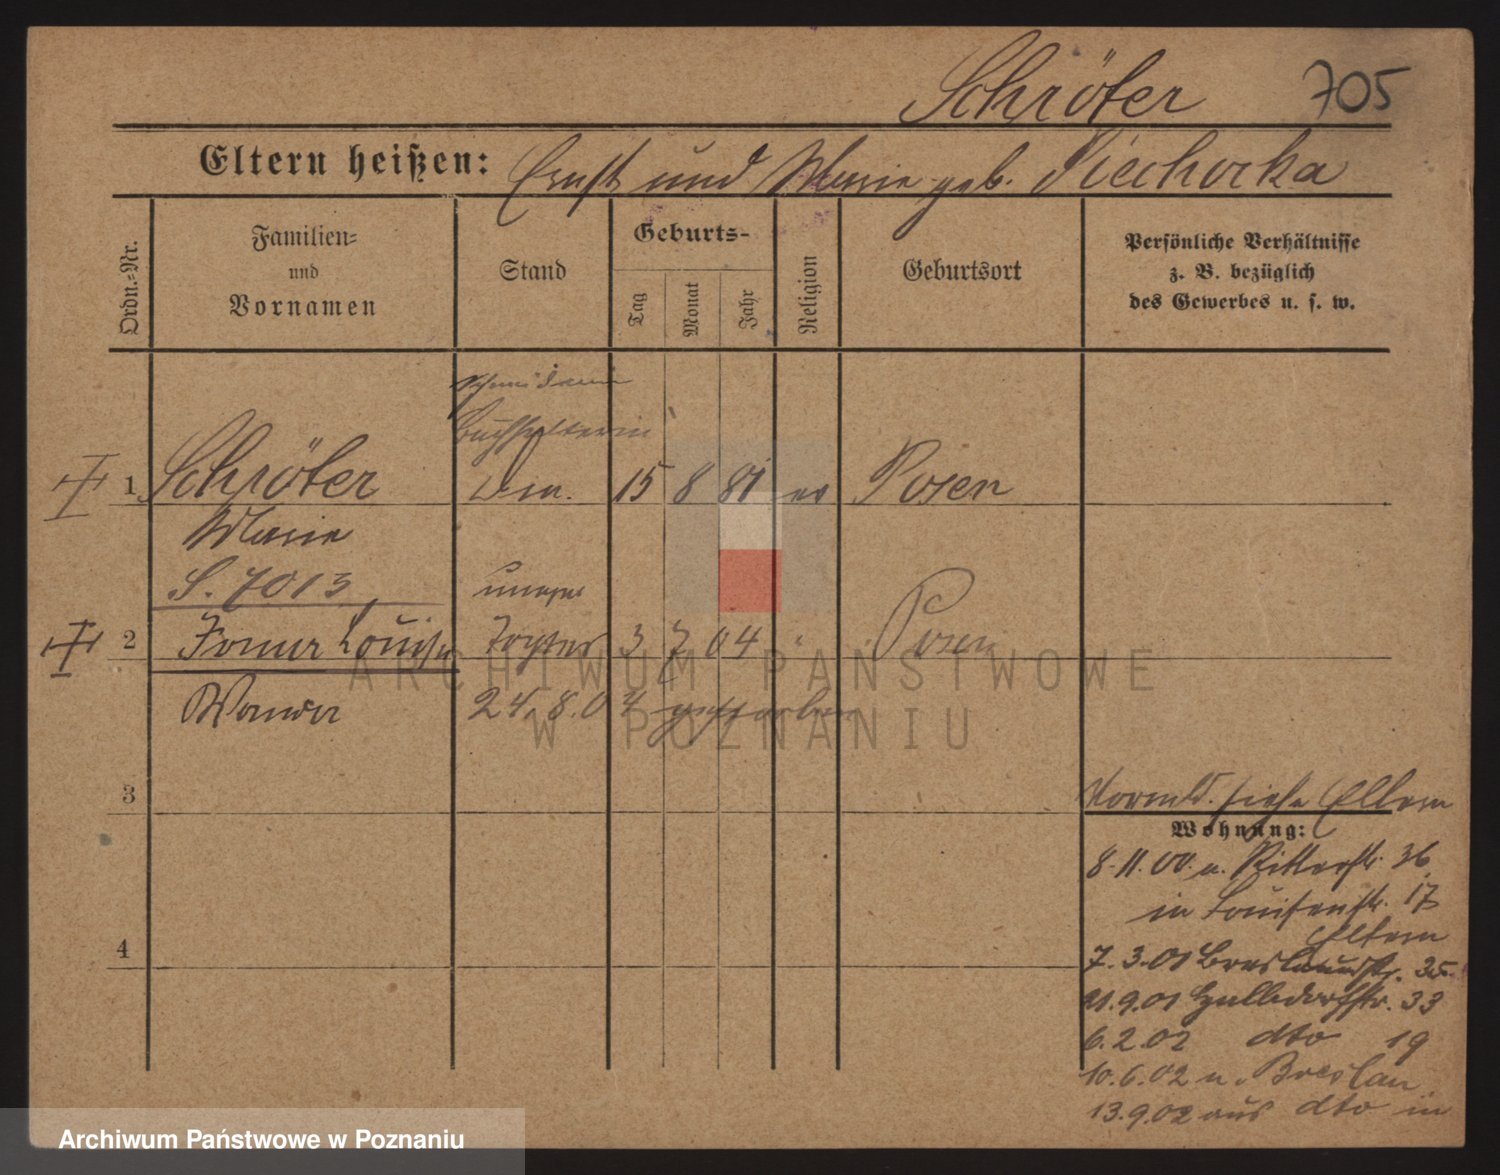 Schröter 705
Eltern heißen: Ernst und Marie geb. Piechocka
Ordn.=Nr.
Familien=
und
Vornamen
Stand
Geburts-
Tag
Monat
Jahr
Religion
Geburtsort
Persönliche Verhältnisse
z. B. bezüglich
des Gewerbes u. s. w.
Buchhalterin
1 Schröter 15 8 81 ev Posen
Marie
S. 7013
unehel
2 Louise Tochter 3 7 04 " Posen
Wanda
24.8.04 gestorben
3
siehe Eltern
Wohnung:
8.11.00. n. Ritterstr. 36
in Louisenstr. 17
Eltern
4
7.3.01 Breslauerstr. 35
21.9.01 33
6.2.02 dto 19
10.6.02 n. Breslau
13.9.02 aus dto in
ARCHIWUM PAŃSTWOWE
W POZNANIU
Archiwum Państwowe w Poznaniu